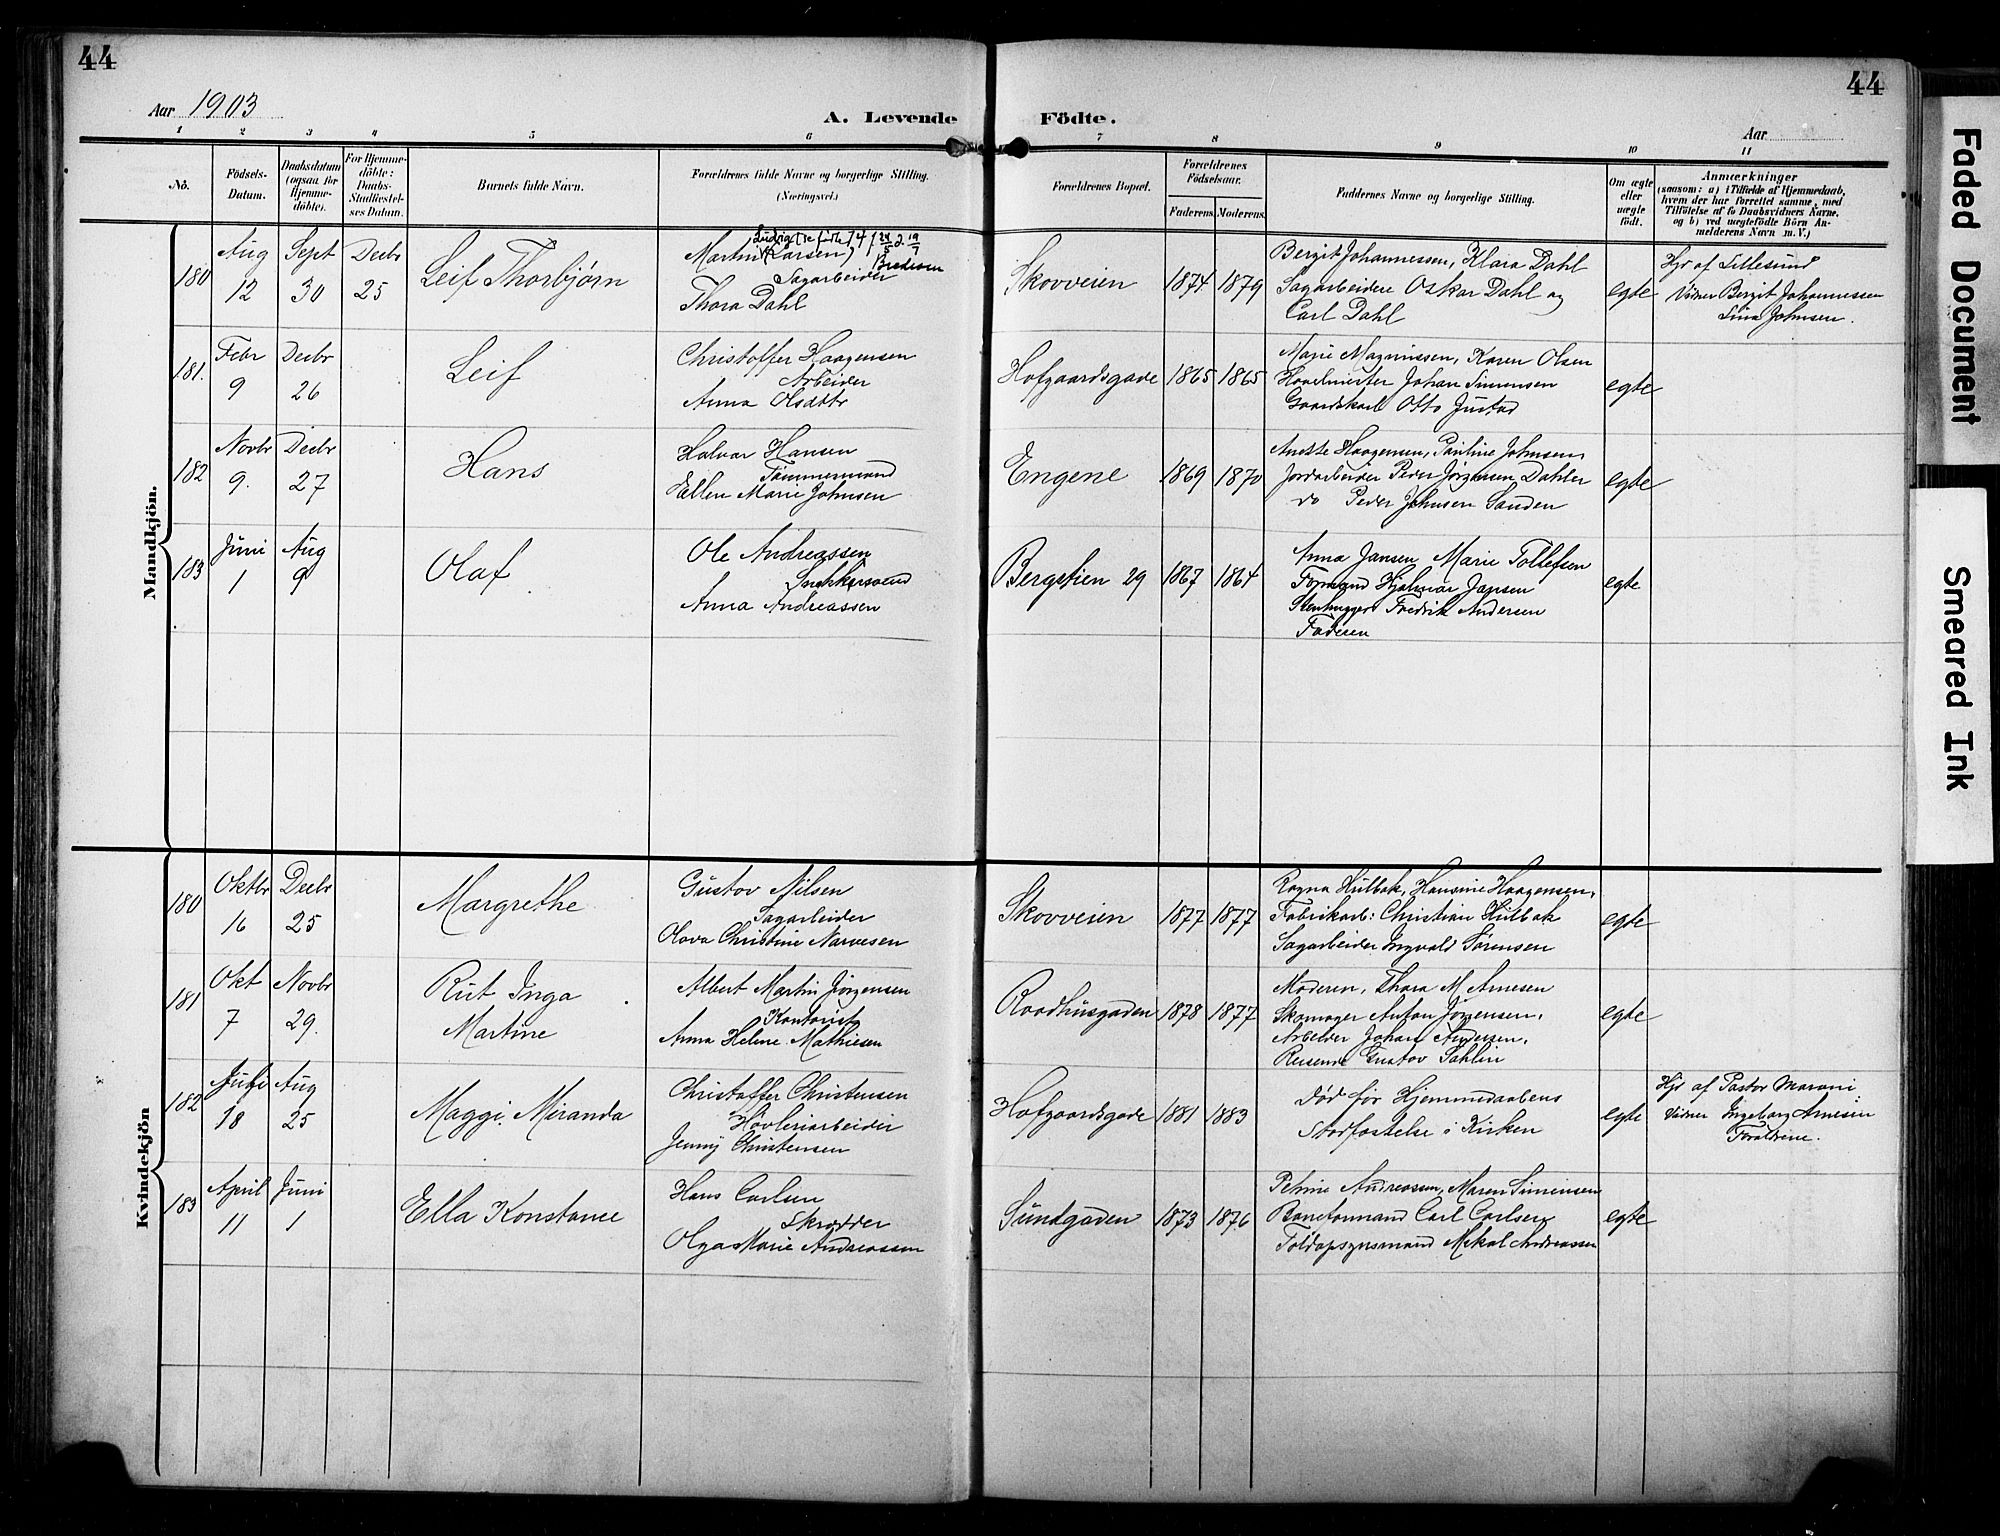 44
44
Aar 1903
A. Levende Födte.
Aar
1 2 3 4 5 6 7 8 9 10 11
No.
Födsels-Datum.
Daabsdatum (ogsaa for Hjemme-döbte).
For Hjemme-döbte: Daabs-Stadfæstel-ses Datum.
Barnets fulde Navn.
Forældrenes fulde Navne og borgerlige Stilling. (Næringsvei.)
Forældrenes Bopæl.
Forældrenes Födselsaar.
Faderens Moderens
Faddernes Navne og borgerlige Stilling.
Om ægte eller uægte født.
Anmærkninger
(saasom: a) i Tilfælde af Hjemmedaab,
hvem der har forrettet samme, med
Tilföielse af to Daabsvidners Navne,
og b) ved uægtefödte Börn An-
melderens Navn m. V.)
Mandkjön.
180
Aug 12
Sept 30
Decbr 25
Leif Thorbjørn
Ludvig
Martin (Larsen)
Bredesen
Sagarbeider
Thora Dahl
Skovveien
1874 1879
Bergit Johannessen, Klara Dahl
Sagarbeidere Oskar Dahl og
Carl Dahl
egte
Hjd af Lillesund
Vidner Bergit Johannessen
Lina Johnsen.
181.
Febr 9
Decbr 26
Leif
Christoffer Haagensen
Arbeider
Anna Olsdttr
Hofgaardsgade
1865 1865
Marie Magnussen, Karen Olsen
Johan Simensen
Gaardskarl Otto Justad
egte
182
Novbr 9.
Decbr 27
Hans
Halvor Hansen
Tømmermand
Ellen Marie Johnsen
Engene
1869 1870
Anette Haagensen, Pauline Johnsen,
Jordarbeider Peder Jørgensen Dahler
do Peder Johnsen Sanden
egte
183
Juni 1
Aug 9
Olaf
Ole Andreassen
Snekkersvend
Anna Andreassen
Bergstien 29
1867 1864
Anna Jansen Marie Tollefsen
Hjalmar Jansen
Stenhugger Fredrik Andersen
Faderen
egte
Kvindekjön
180
Oktbr 16
Decbr 25
Margrethe
Gustav Nilsen
Sagarbeider
Olava Christine Narvesen
Skovveien
1877 1877
Ragna Hulbak, Hansine Haagensen,
Fabrikarb: Christian Hulbak
Sagarbeider Ingvald Sørensen
egte
181
Okt 7
Novbr 29.
Rut Inga
Martine
Albert Martin Jörgensen
Kontorist
Anna Helene Mathiesen
Raadhusgaden
1878 1877
Moderen, Thora M Arnesen
Skomager Anton Jörgensen,
Arbeider Johan Andersen,
Reisende Gustav Sahlin
egte
182
18
Aug 25
Maggi Miranda
Christoffer Christensen
Høvleriarbeider
Jenny Christensen
Hofgaardsgade
1881 1883
Død før Hjemmedaabens
Stadfæstelse i Kirken
egte
Hjd af Pastor
Vidner Ingeborg Arnesen
Forældrene.
183
April 11
Juni 1
Ella Konstance
Hans Carlsen
Skrædder
Olga Marie Andreassen
Sundgaden
1873 1876
Petrine Andreassen, Maren Simensen
Baneformand Carl Carlsen
Toldopsynsmand Mikal Andreassen
egte
Faded Document
Smeared Ink